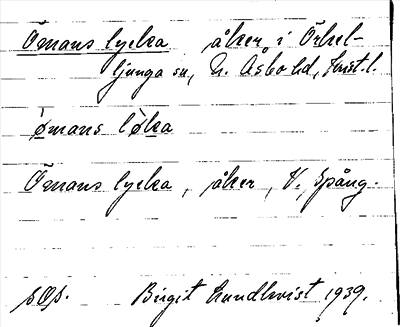 Ömans lycka åker i Örkel-
ljunga sn, N. Åsbo hd, Krist. l.
ømans løka
Ömans lycka, åker, V. Spång.
s. Øs. Birgit Lundkvist 1939.